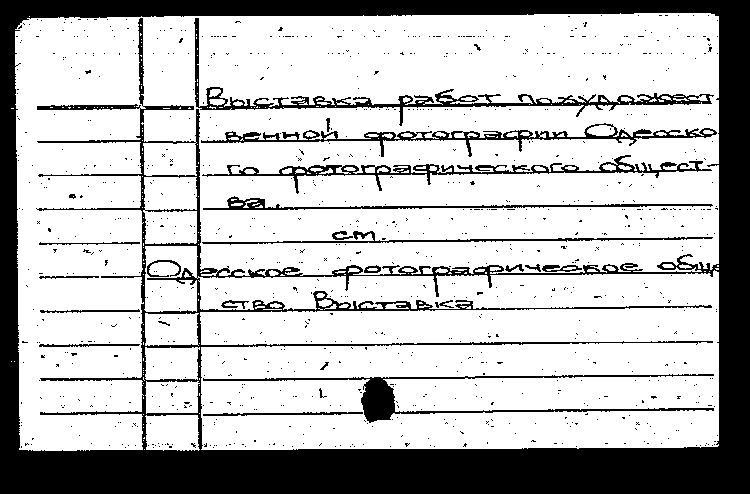 Выставка работ по художест-
венной фотографии Одесско
го фотографического общест-
ва.
см.
Одесское фотографическое обще
ство. Выставка